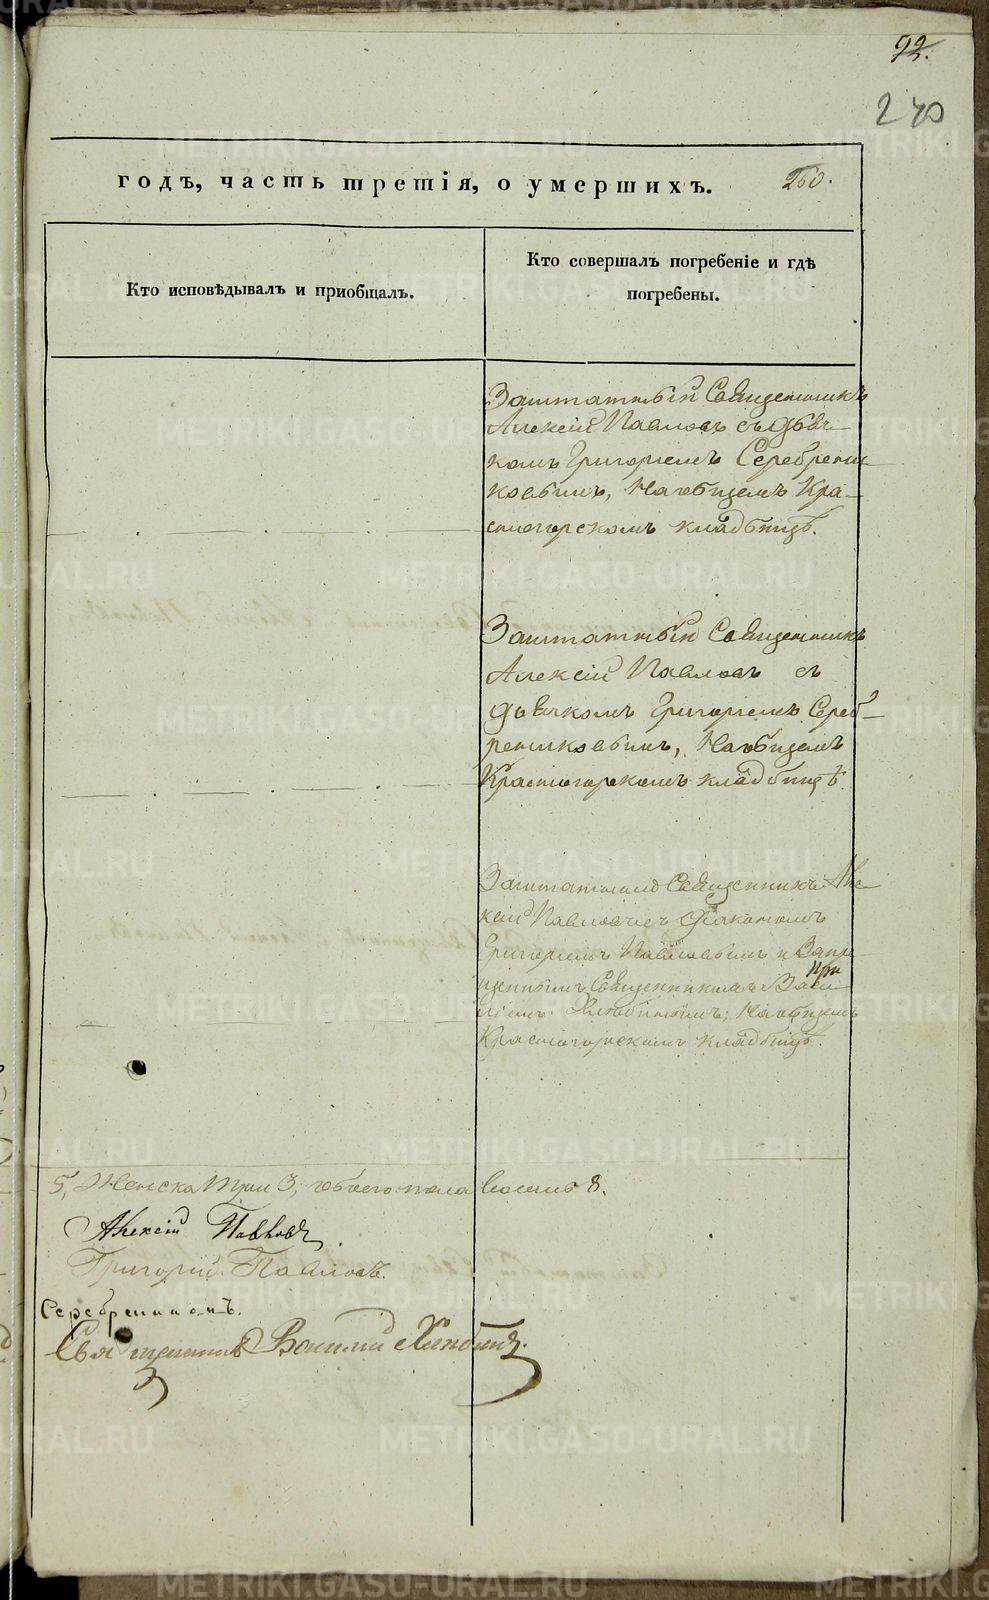 92.
240
годъ, часть третія, о умершихъ.
260.
Кто исповѣдывалъ и приобщалъ.
Кто совершалъ погребеніе и гдѣ
погребены.
Заштатный Священникъ
Алексій Павловъ съ дьяч-
комъ Григоріемъ Серебрени-
ковымъ, На общемъ Кра-
сногорскомъ кладбищѣ.
Заштатный Священникъ
Алексій Павловъ съ
дьячкомъ Григоріемъ Сереб-
рениковымъ, На общемъ
Красногорскомъ кладбищѣ.
Заштатный Священникъ Але-
ксій Павловъ съ Діакономъ
Григоріемъ Павловымъ и Запре
при
щеннымъ Священникомъ Васи-
ліемъ Хлюбинымъ; На общемъ
Красногорскомъ кладбищѣ.
5, Женска три 3, обоего пола восемь 8.
Алексій Павловъ.
Григорій Павловъ.
Серебрениковъ.
Священникъ Василій
METRIKI.GASO-URAL.RU